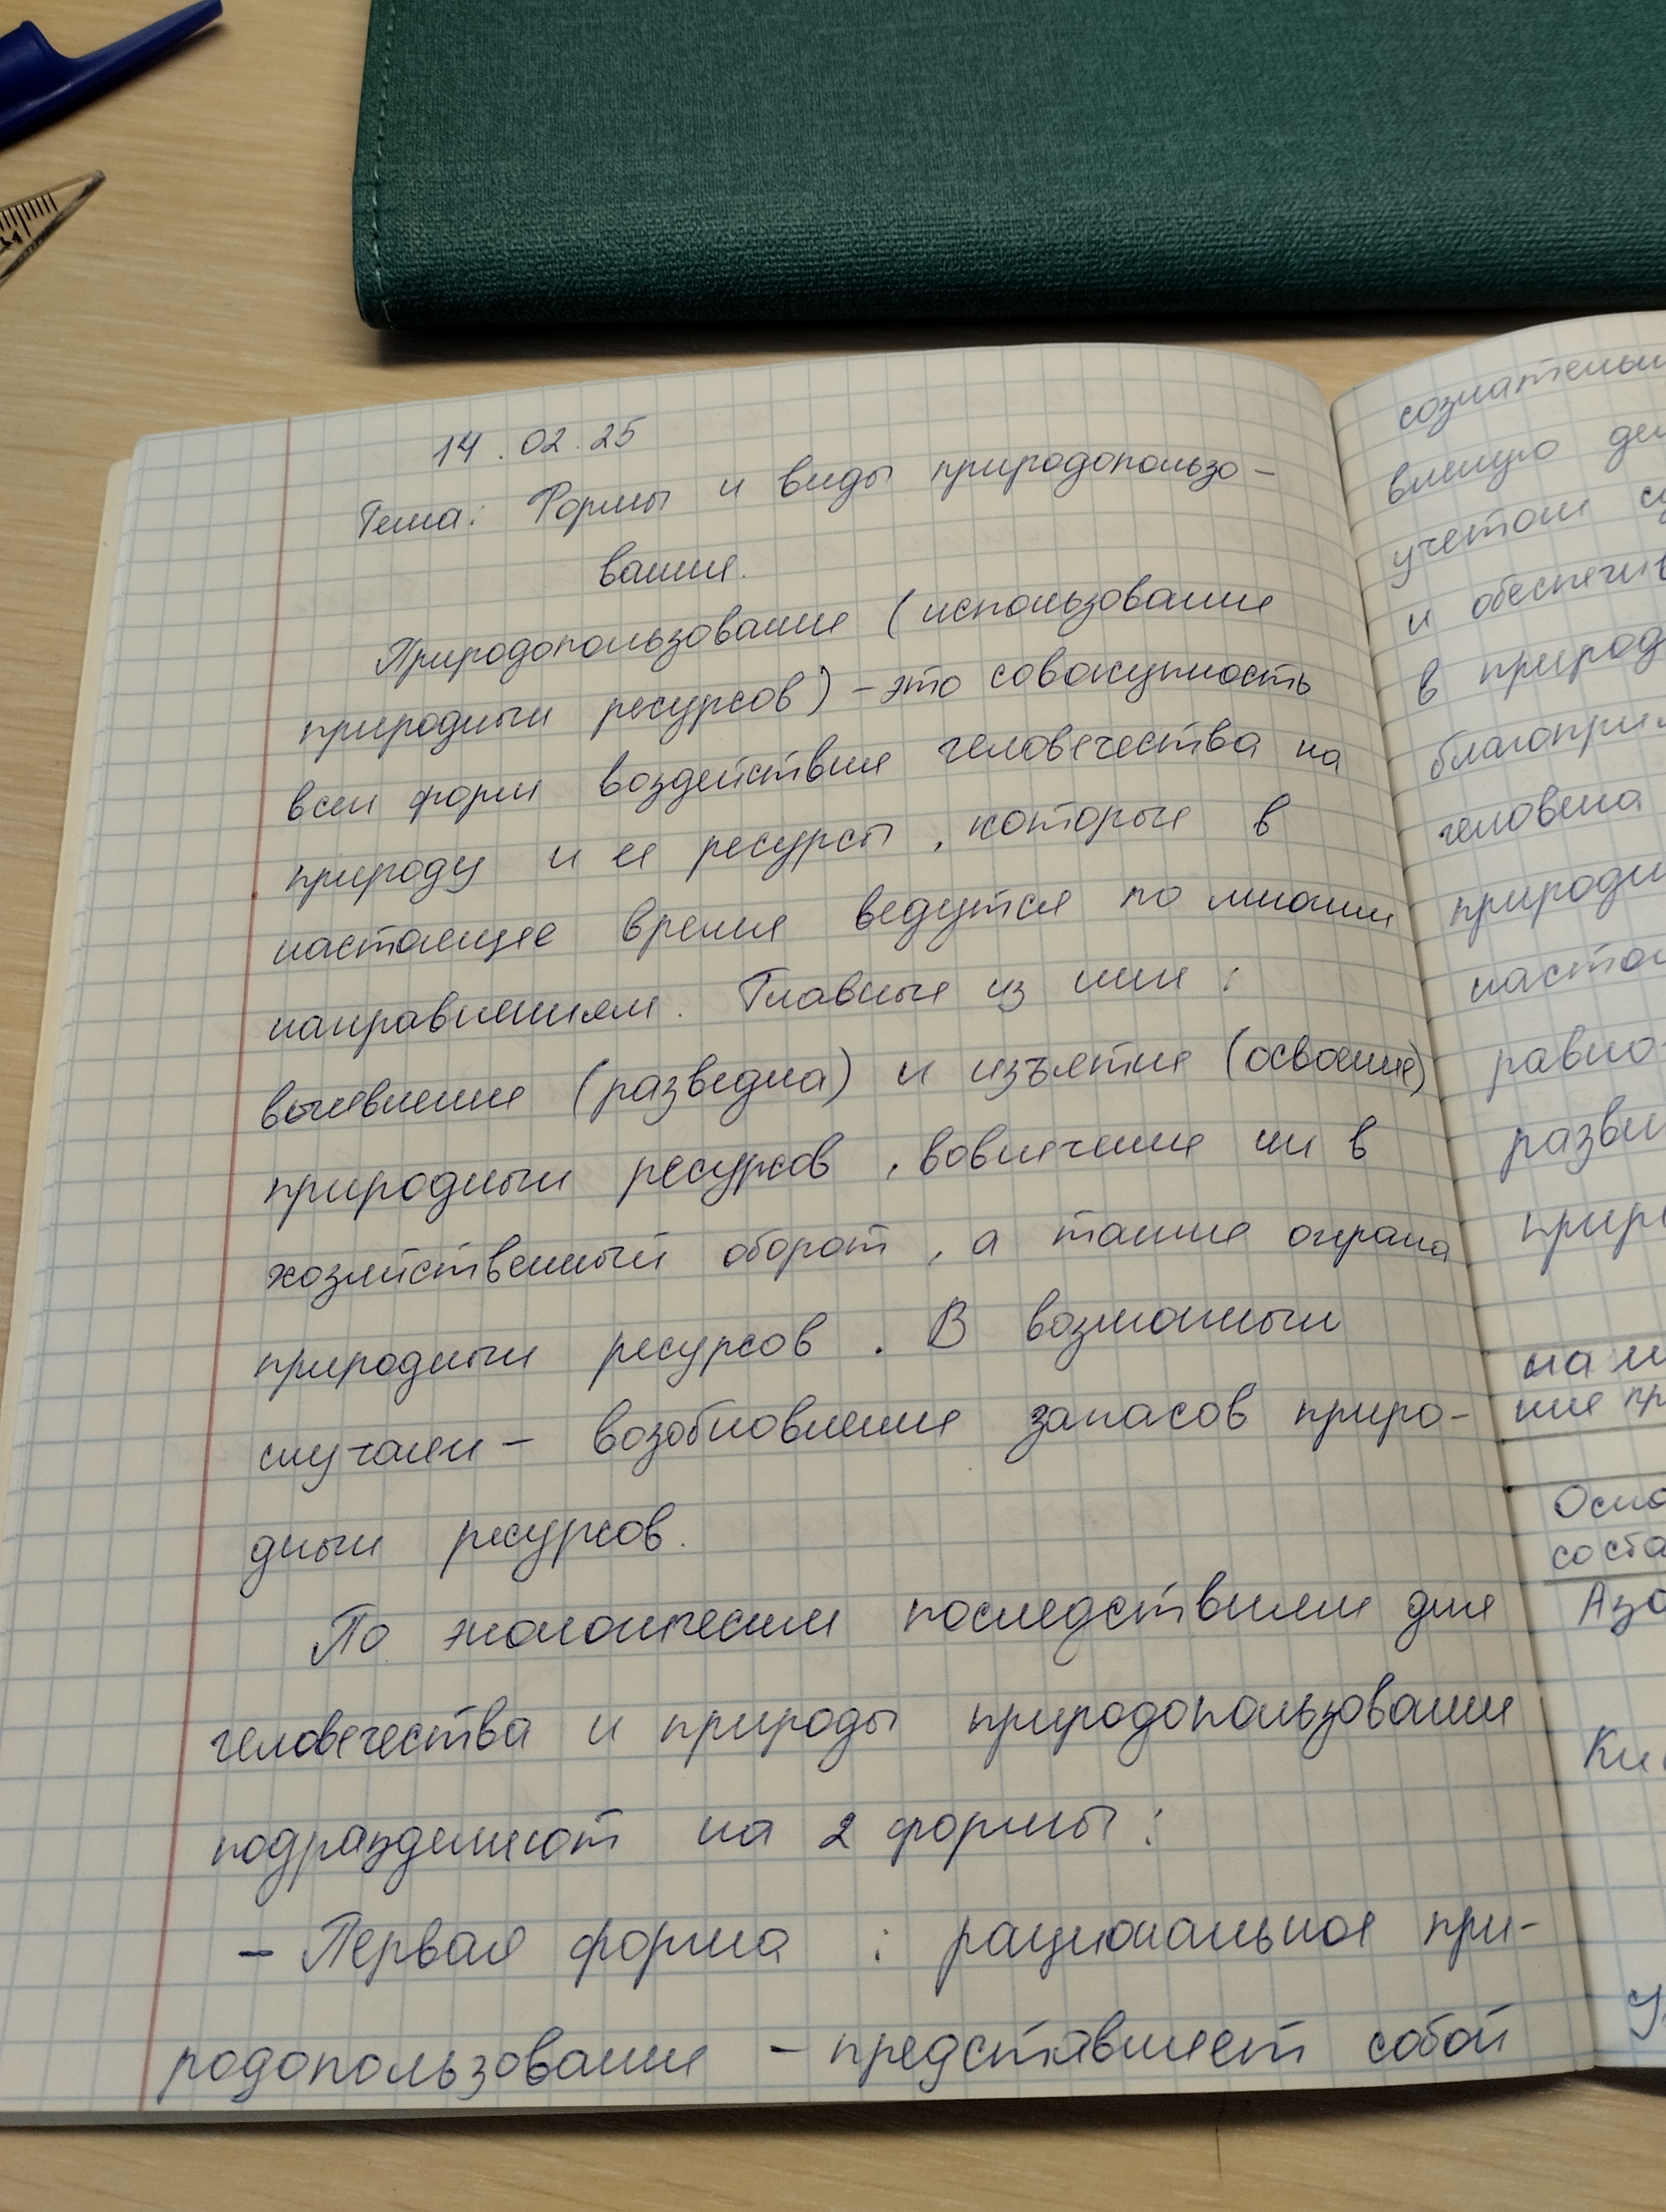 14.02.25
Тема: Формы и виды природопользо-
вания.
Природопользование (использование
природных ресурсов) - это совокупность
всех форм воздействия человечества на
природу и ее ресурсы, которые в
настоящее время ведутся по многим
направлениям. Главные из них:
выявление (разведка) и изъятие (освоение)
природных ресурсов, вовлечение их в
хозяйственный оборот, а также охрана
природных ресурсов. В возможных
случаях - возобновление запасов приро-
дных ресурсов.
По экологическим последствиям для
человечества и природы природопользование
подразделяют на 2 формы:
- Первая форма: рациональное при-
родопользование - представляет собой
сознательн
вленую де
учетом
и обеспечив
в природ
благоприя
человека
природн
насто
равно
разви
прир
на
ние пр
Осно
соста
Азо
Ки
У